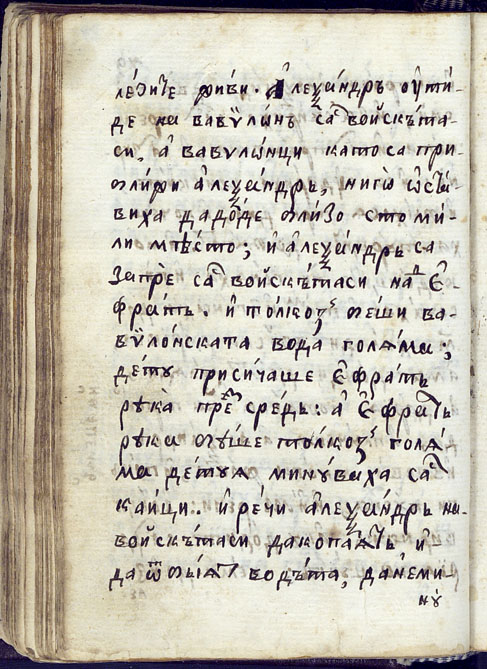 ле́жите живи. А҆леѯа́ндрь ѹ҆ти-
де на вавѷлѡ́нь са войскѣта-
си, а҆ вавѵлѡ́нци като са при
ближи а҆леѯа́ндрь, нигѡ̀ ѡ҆ста-
виха дадо́де близо сто ми-
ли мѣ́сто; и҆ а҆леѯа́ндрь са
запрѐ са войскѣтаси наⷣ є҆-
фрать. и҆ толкоз беши ва-
вѷло́нската вода̀ голѧ́ма;
де́ту присичаше є҆фрать
рѣка̀ преⷥ сре́дь: а҆ є҆фрать
рѣка бѣ́ше толкоз голѧ́-
ма де́туѧ минꙋ́ваха са
каи́ци. и҆ ре́чи а҆леѯа́ндрь на-
войскѣтаси дакопа́ѧть и҆-
да ѿбиѧт водѣ́та, дане́ми-
нꙋ